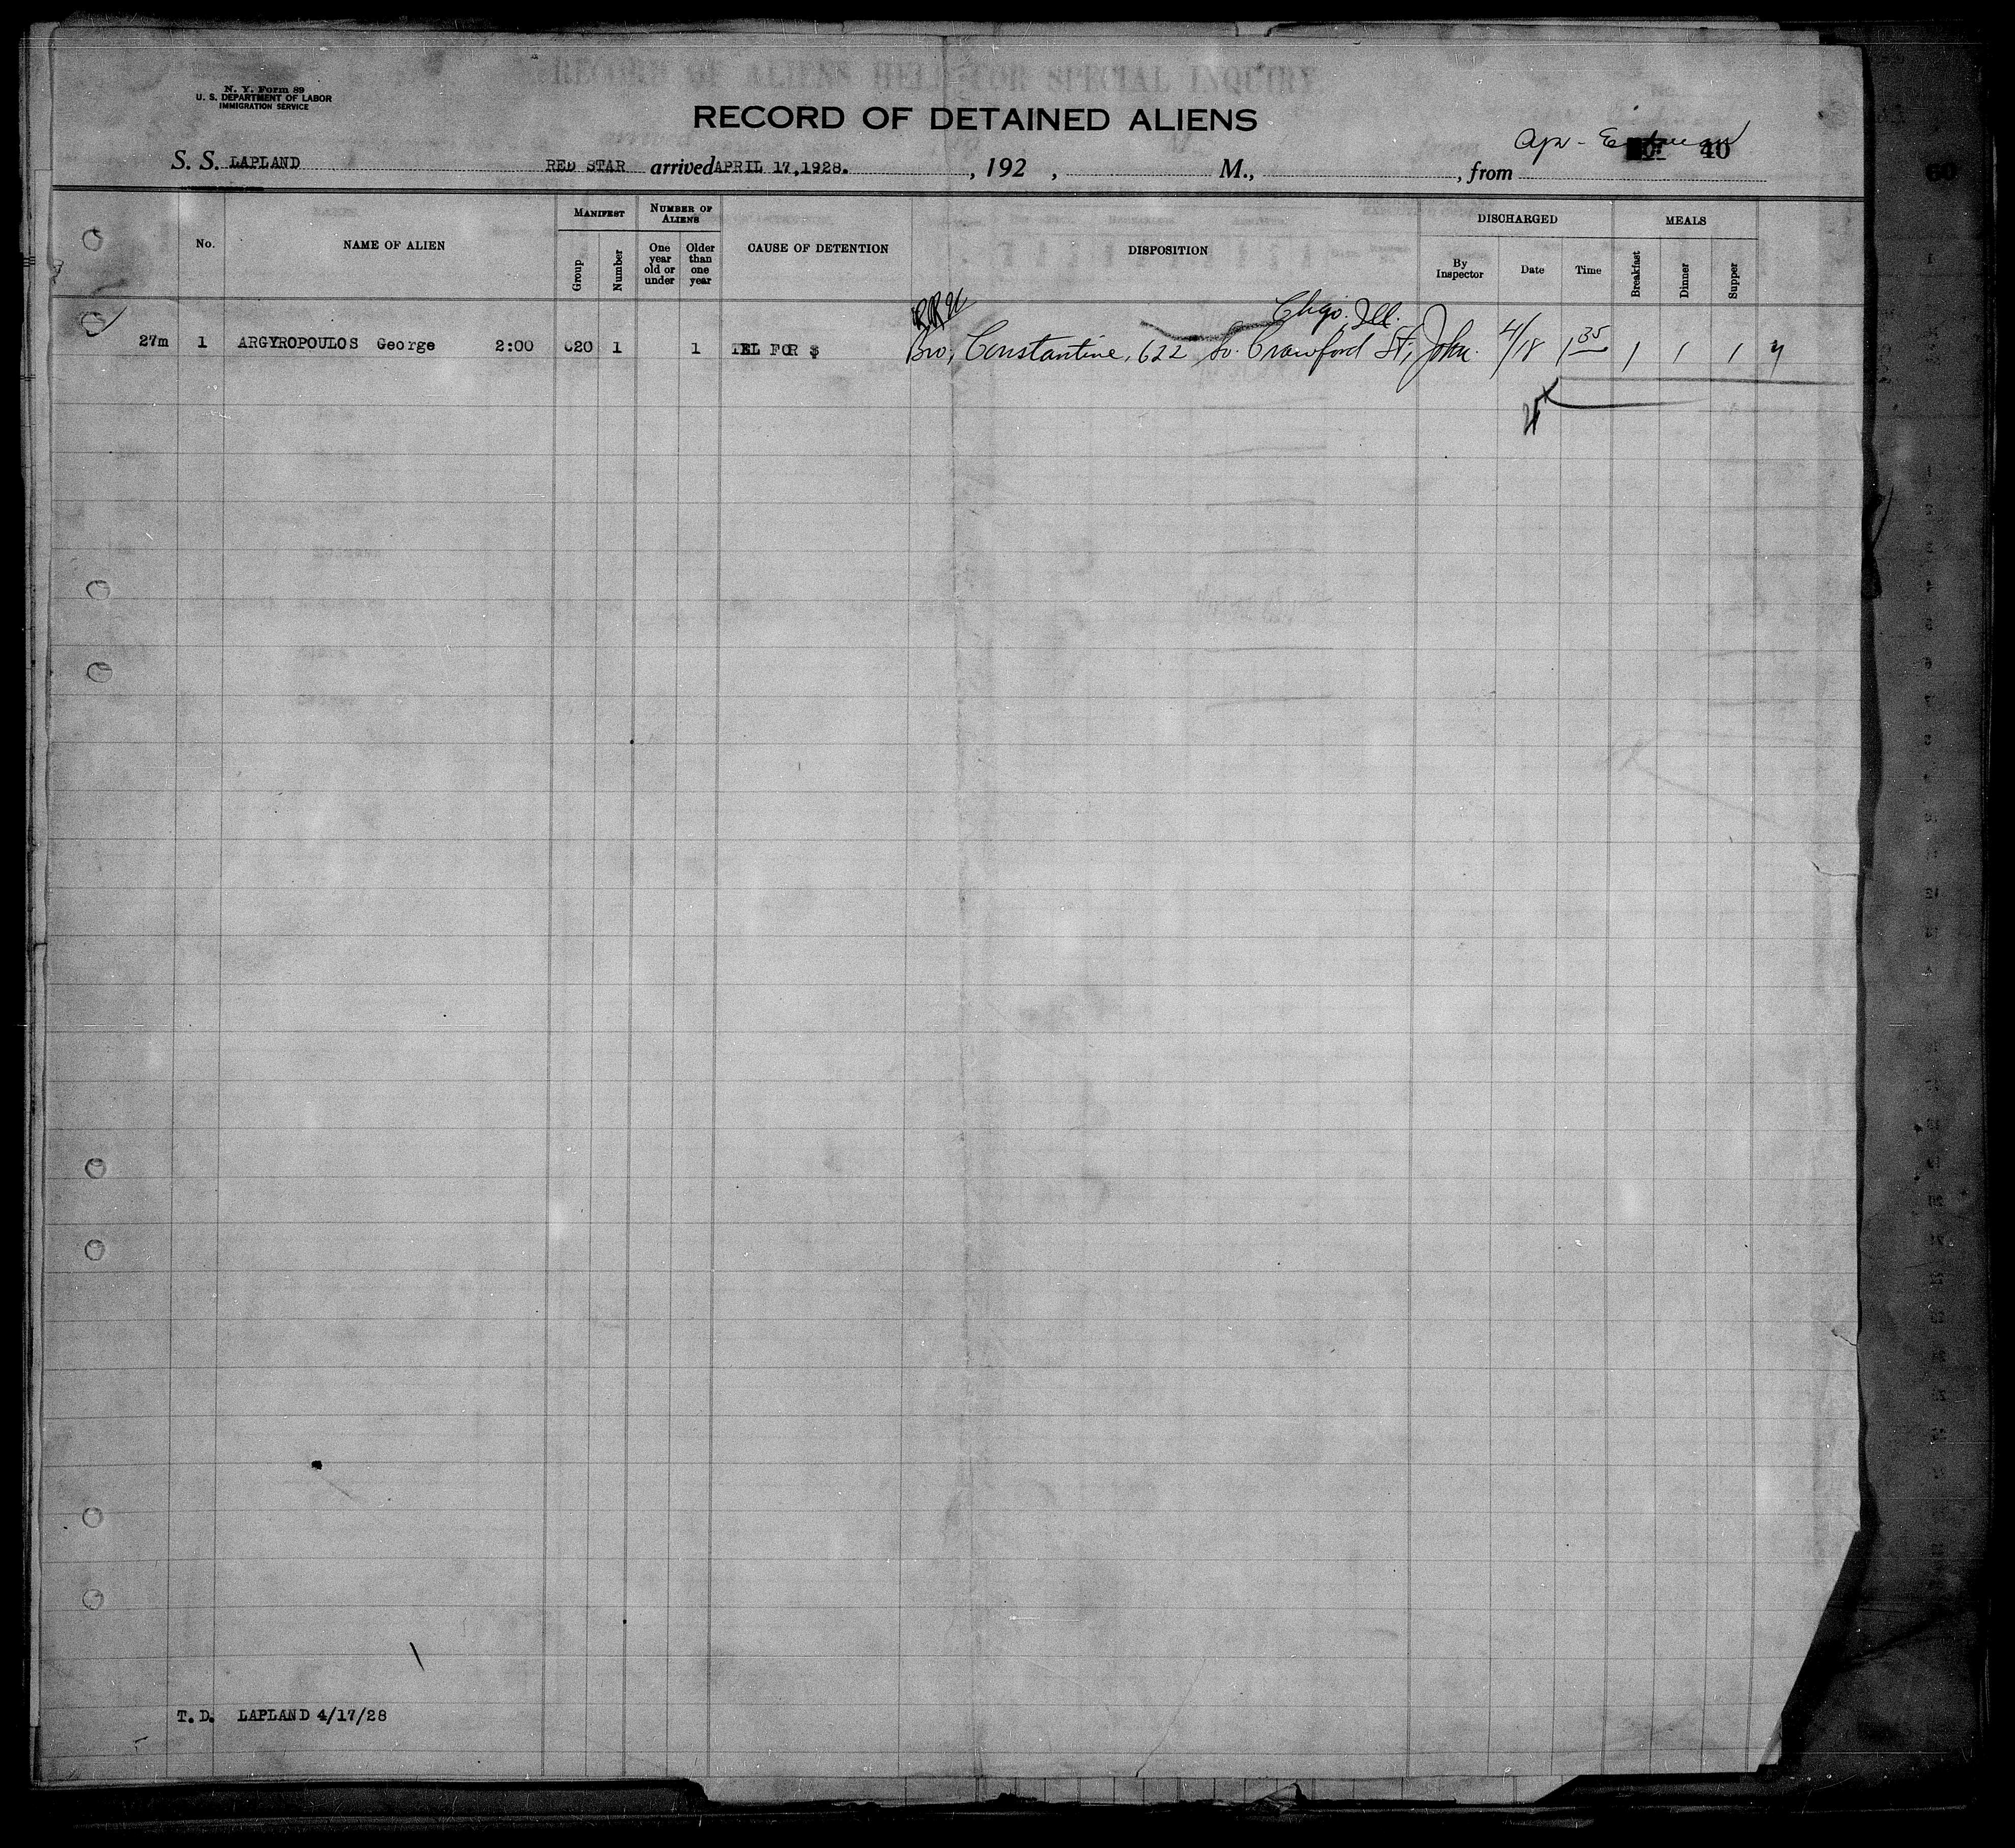 RECORD OF ALIENS HELD FOR SPECIAL INQUIRY
N. Y. Form 89
U. S. DEPARTMENT OF LABOR
IMMIGRATION SERVICE
RECORD OF DETAINED ALIENS
S. S. LAPLAND RED STAR arrived APRIL 17,1928. , 192 , M., , from 40
60
No. NAME OF ALIEN MANIFEST NUMBER OF ALIENS CAUSE OF DETENTION DISPOSITION DISCHARGED MEALS
Group Number One year old or under Older than one year By Inspector Date Time Breakfast Dinner Supper
Chgo. Ill.
27m 1 ARGYROPOULOS George 2:00 020 1 1 TEL FOR $ Bro, Constantine, 622 So. Crawford St, John. 4/18 1 35 1 1 1
T. D. LAPLAND 4/17/28